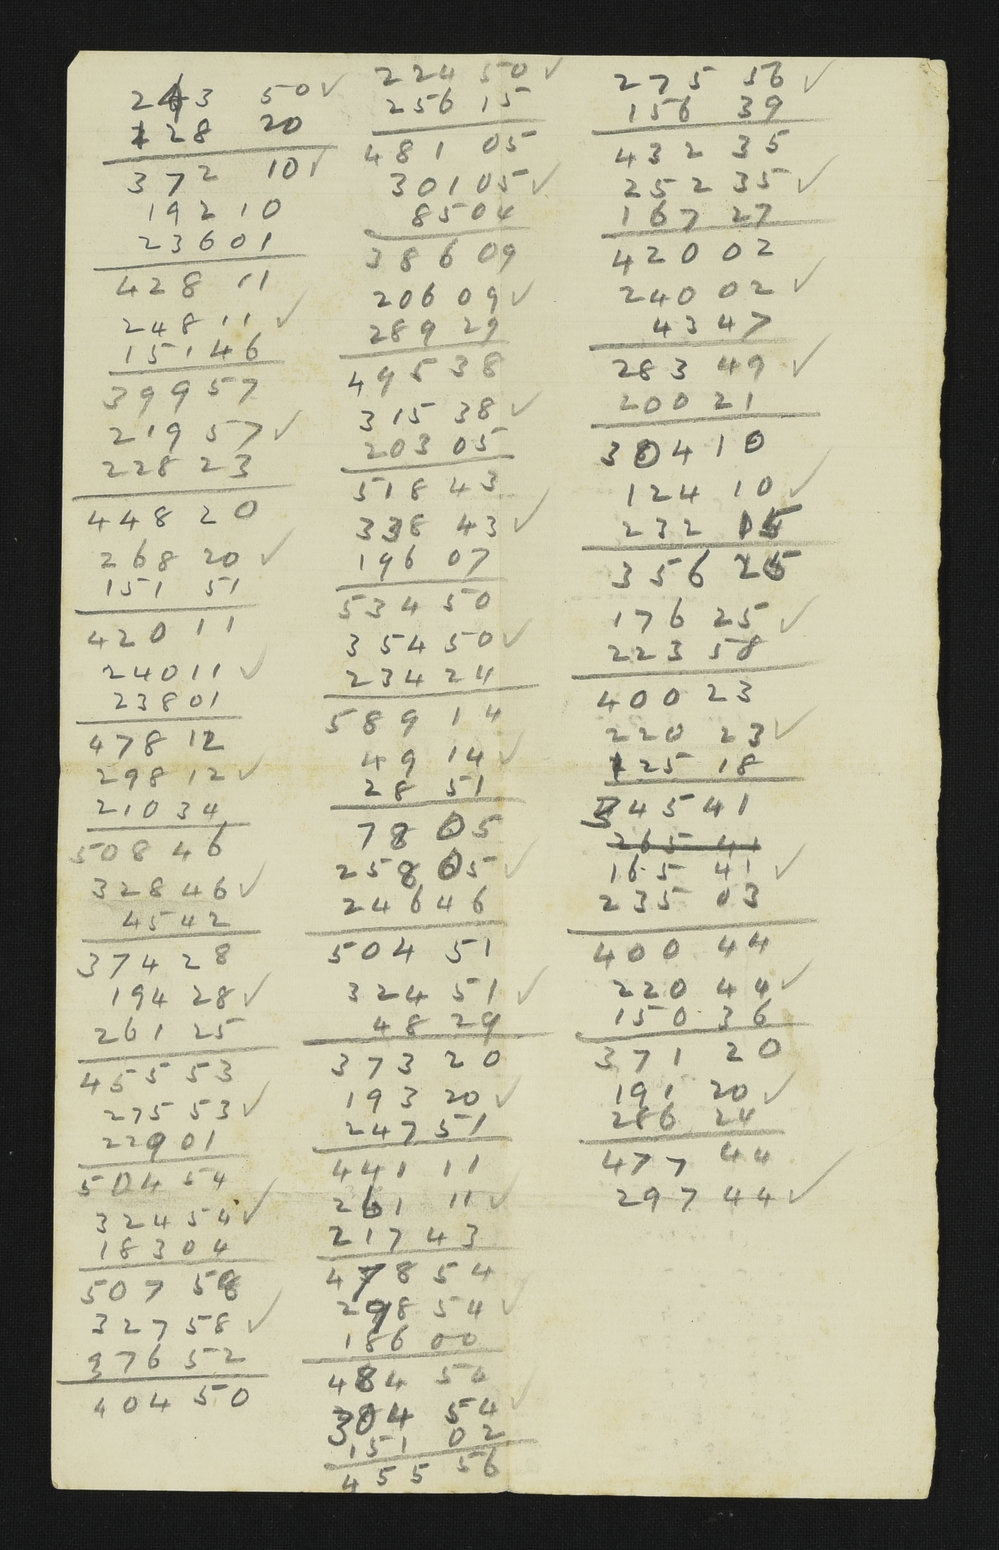 243 50 ✓
128 20
372 10 ✓
192 10
236 01
428 11
248 11 ✓
151 46
399 57
219 57 ✓
228 23
448 20
268 20 ✓
151 51
420 11
240 11 ✓
238 01
478 12
298 12 ✓
210 34
508 46
328 46 ✓
45 42
374 28
194 28 ✓
261 25
455 53
275 53 ✓
229 01
504 54
324 54 ✓
183 04
507 58
327 58 ✓
976 52
404 50
224 50 ✓
256 15
481 05
301 05 ✓
85 04
386 09
206 09 ✓
289 29
495 38
315 38 ✓
203 05
518 43
338 43 ✓
196 07
534 50
354 50 ✓
234 24
589 14
49 14 ✓
28 51
78 05
258 05 ✓
246 46
504 51
324 51 ✓
48 29
373 20
193 20 ✓
247 51
441 11
261 11 ✓
217 43
478 54
298 54 ✓
186 00
484 54
304 54 ✓
151 02
455 56
275 56 ✓
156 39
432 35
252 35 ✓
167 27
420 02
240 02 ✓
43 47
283 49 ✓
200 21
304 10
124 10 ✓
232 15
356 25
176 25 ✓
223 58
400 23
220 23 ✓
125 18
345 41
265 41
165 41 ✓
235 03
400 44
220 44 ✓
150 36
371 20
191 20 ✓
286 24
477 44
297 44 ✓